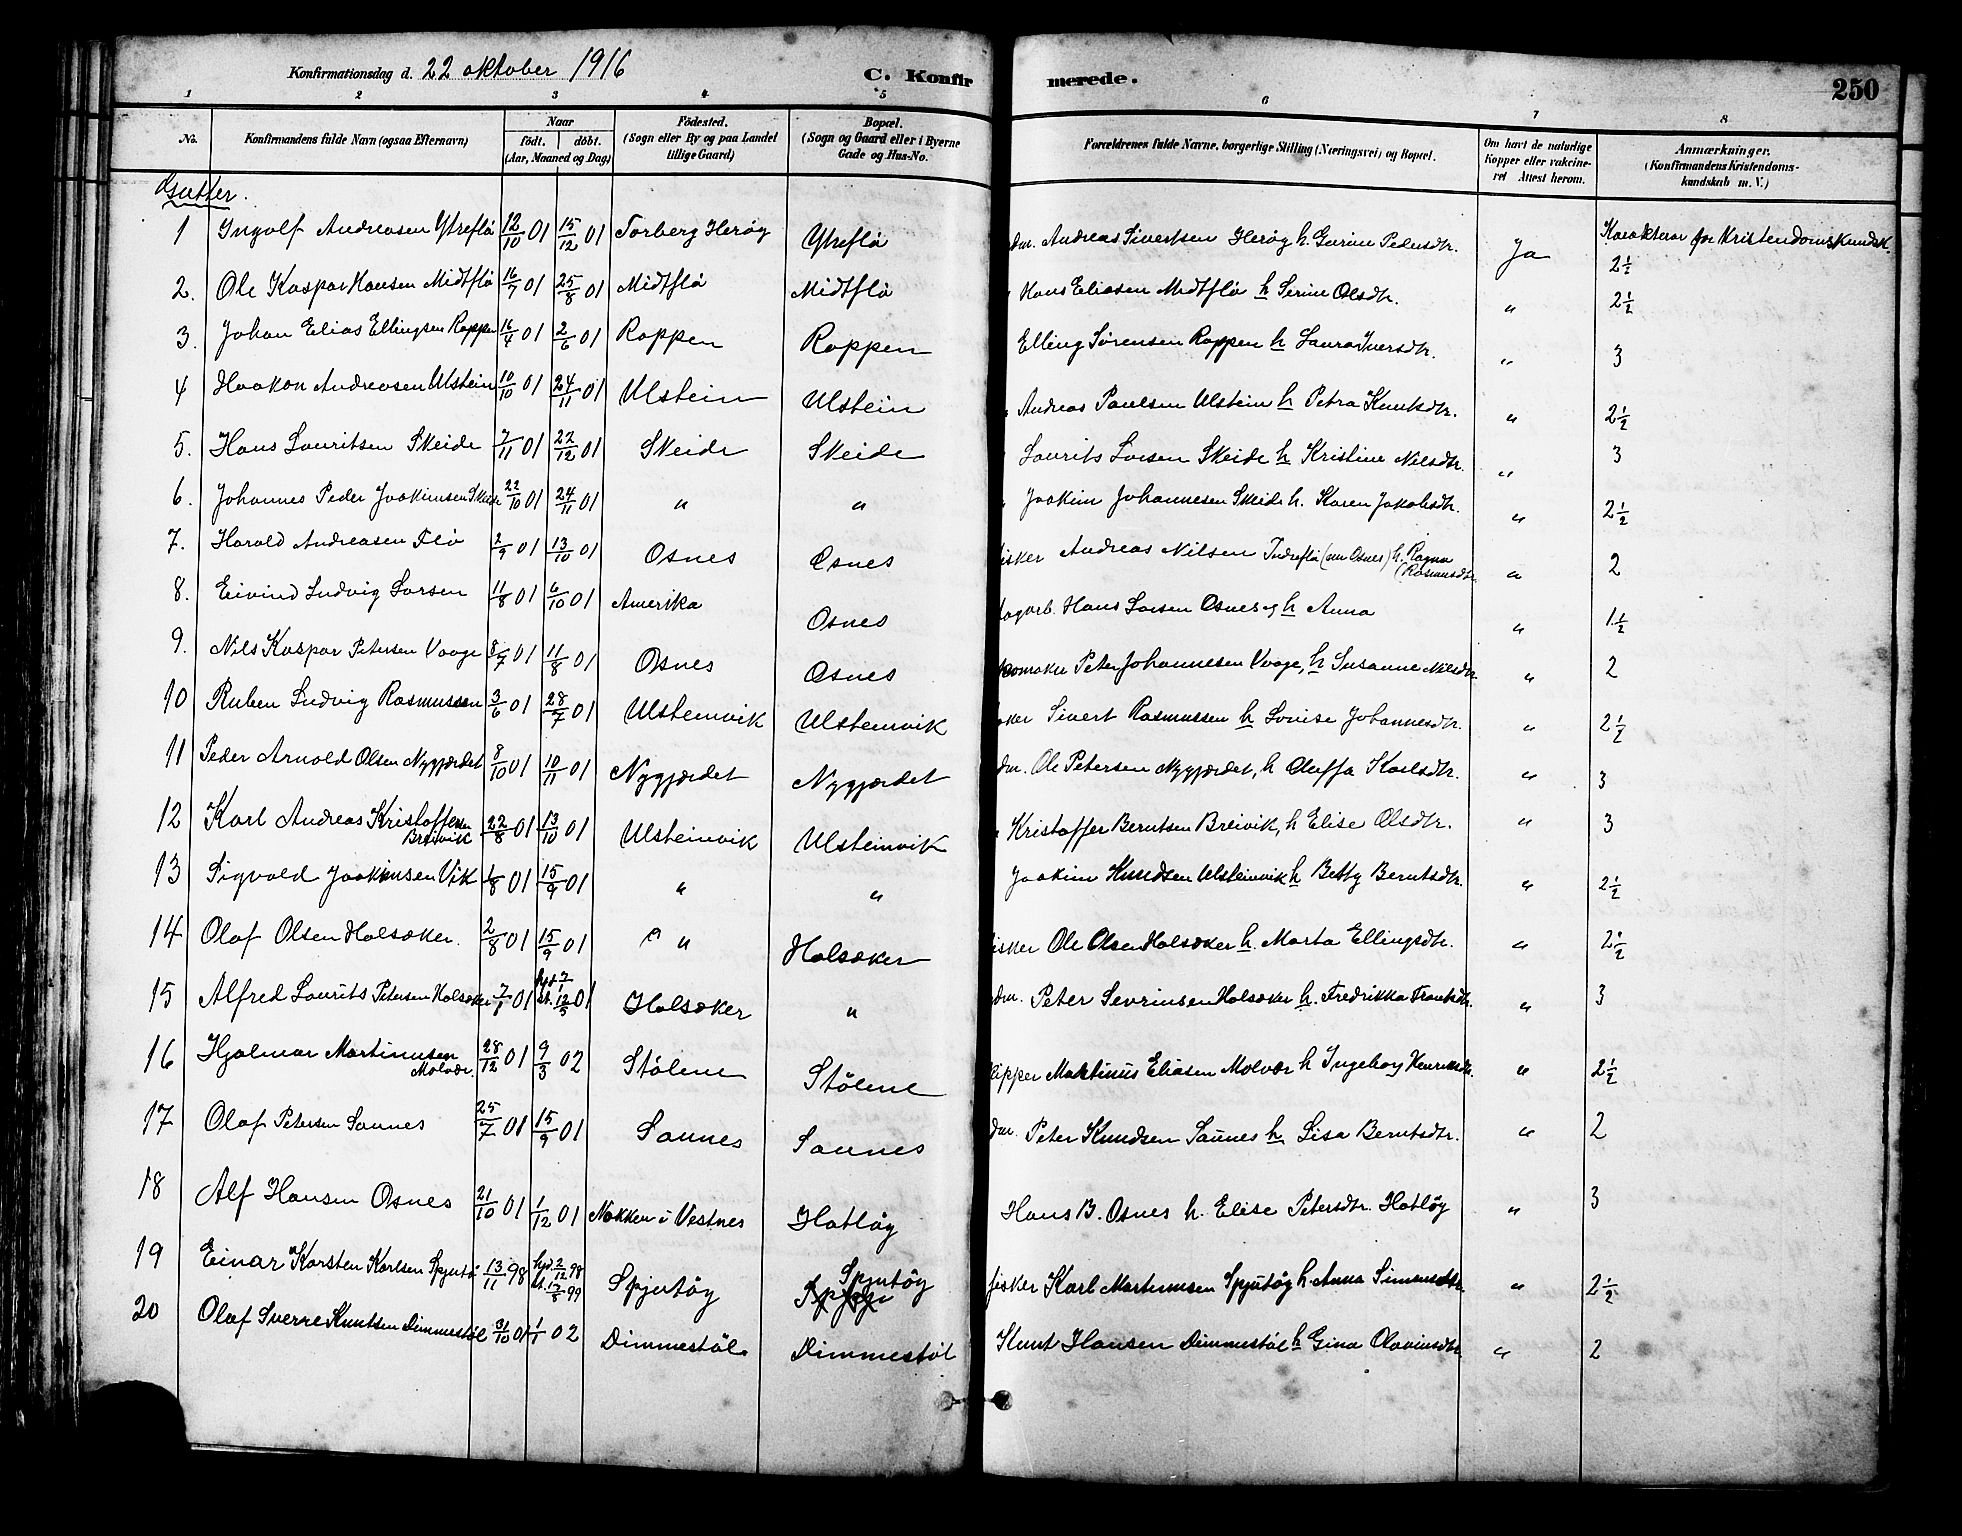 Konfirmationsdag d. 22 oktober 1916 C. Konfirmerede. 250
1 2 3 4 5 6 7 8
No. Konfirmandens fulde Navn (ogsaa Efternavn) Naar født. døbt. (Aar, Maaned og Dag) Fødested. (Sogn eller By og paa Landet tillige Gaard) Bopæl. (Sogn og Gaard eller i Byerne Gade og Hus-No. Forældrenes fulde Navne, borgerlige Stilling (Næringsvei) og Bopæl. Om havt de naturlige Kopper eller vakcineret Attest herom. Anmærkninger. (Konfirmandens Kristendomskundskab m. V.)
Gutter.
Karakterer for Kristendomskundsk.
1 Ingolf Andreasen Ytreflø 12/10 01 15/12 01 Torberg Herøy Ytreflø dm. Andreas Sivertsen Herøy h. Gurine Pedersdtr. Ja 2½
2. Ole Kaspar Hansen Midtflø 16/7 01 25/8 01 Midtflø Midtflø Hans Eliasen Midtflø h Serine Olsdtr. " 2½
3. Johan Elias Ellingsen Roppen 16/4 01 2/6 01 Roppen Roppen Elling Sørensen Roppen h Laura Iversdtr. " 3
4 Haakon Andreasen Ulstein 10/10 01 24/11 01 Ulstein Ulstein Andreas Paulsen Ulstein h Petra Knutsdtr. " 2½
5. Hans Lauritsen Skeide 7/11 01 22/12 01 Skeide Skeide Laurits Larsen Skeide h Kristine Nilsdtr. " 3
6. Johannes Peder Joakimsen Skeide 22/10 01 24/11 01 " " Joakim Johannesen Skeide h. Karen Jakobsdtr. " 2½
7. Harald Andreasen Flø 2/9 01 13/10 01 Osnes Osnes isker Andreas Nilsen Indreflø (nu Osnes) h. Ragna (Rasmusdtr. " 2
8. Eivind Ludvig Larsen 11/8 01 6/10 01 Amerika Osnes dagarb. Hans Larsen Osnes og h Anna " 1½
9. Nils Kaspar Petersen Vaage 8/7 01 11/8 01 Osnes Osnes komaker Peter Johannesen Vaage, h Susanne Nilsdtr. " 2
10 Ruben Ludvig Rasmussen 3/6 01 28/7 01 Ulsteinvik Ulsteinvik oker Sivert Rasmussen h Lovise Johannesdtr. " 2½
11 Peder Arnold Olsen Nygjærdet 8/10 01 10/11 01 Nygjærdet Nygjærdet dm. Ole Petersen Nygjærdet, h Oluffa Karlsdtr. " 3
12 Karl Andreas Kristoffersen Breivik 22/8 01 13/10 01 Ulsteinvik Ulsteinvik Kristoffer Berntsen Breivik, h Elise Olsdtr. " 3
13 Sigvald Joakimsen Vik 1/8 01 15/9 01 " " Joakim Knudsen Ulsteinvik h Betty Berntsdtr. " 2½
14 Olaf Olsen Holsæker. 2/8 01 15/9 01 " Holsæker isker Ole Olsen Holsæker h. Marta Ellingsdtr. " 2½
15 Alfred Laurits Petersen Holsæker 7/1 01 hjd. 7/1 st. 12/5 01 Holsæker " dm. Peter Sevrinsen Holsæker h. Fredrikka Frantsdtr. " 3
16 Hjalmar Martinusen Molvær. 28/12 01 9/3 02 Stølene Stølene lipper Martinus Eliasen Molvær h Ingeborg Henriksdtr. " 2½
17 Olaf Petersen Saunes 25/7 01 15/9 01 Saunes Saunes dm. Peter Knudsen Saunes h Lisa Berntsdtr. " 2
18 Alf Hansen Osnes 21/10 01 1/12 01 Nakken i Vestnes Hatløy Hans B. Osnes h. Elise Petersdtr. Hatløy " 3
19 Einar Karsten Karlsen Spjutø 13/11 98 hjd. 2/12 98 st. 17/8 99 Spjutøy Spjutøy fisker Karl Martinusen Spjutøy h Anna Simensdtr. " 2½
20 Olaf Sverre Knutsen Dimmestøl 31/10 01 1/1 02 Dimmestøl. Dimmestøl Knut Hansen Dimmestøl h Gina Olavinsdtr. " 2